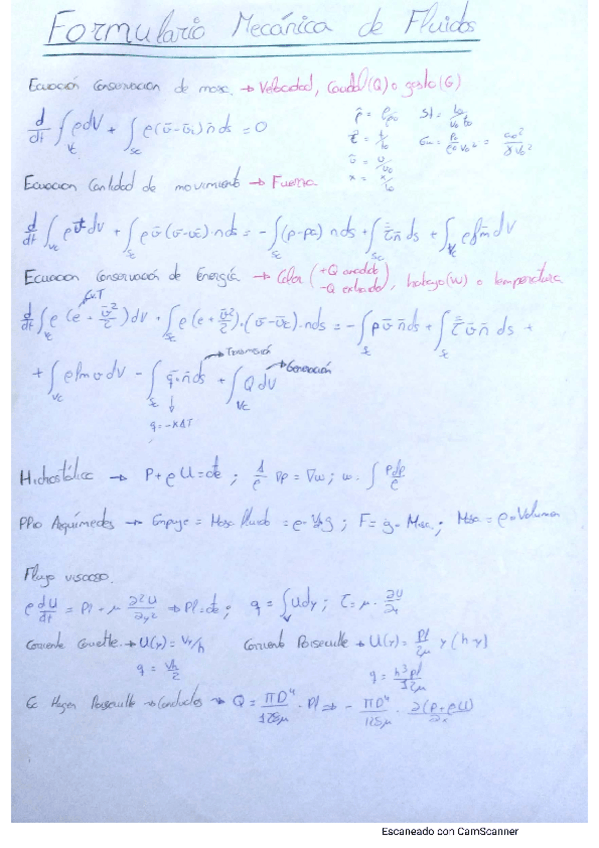 Formulario Mecánica de Fluidos
Ecuación Conservacion de masa → Velocidad, Caudal (Q) o gasto (G)
d/dt ∫_Vc ρ dV + ∫_Sc ρ(v̄ - v̄c) n̄ ds = 0
ρ̂ = ρ/ρ₀   St = t₀/v₀t₀
τ̂ = t/t₀   Eu = P₀/ρ₀v₀² = a₀²/γv₀²
v̄ = v/v₀
x = x/l₀
Ecuacion Cantidad de movimiento → Fuerza
d/dt ∫_Vc ρ v̄ dV + ∫_Sc ρ v̄ (v̄ - v̄c)·n ds = -∫_Sc (p - pa) n ds + ∫_Sc τ̿ n̄ ds + ∫_Vc ρ f̄m dV
Ecuacion Conservación de Energía → Calor (+Q anadido -Q extraido), trabajo (W) o temperatura
CvT
d/dt ∫_Vc ρ (e + v̄²/2) dV + ∫_Sc ρ (e + v̄²/2)·(v̄ - v̄c)·n ds = -∫_Sc p v̄ n̄ ds + ∫_Sc τ̿ v̄ n ds +
→ Generación
+ ∫_Vc ρ fm v dV - ∫_Sc q̄·n̄ ds + ∫_Vc Q dV
q = -K ΔT
Hidrostática → P + ρU = cte ; 1/ρ ∇p = ∇w ; w = ∫ dp/ρ
PPio Arquímedes → Empuje = Masa fluido = ρ · V · g ; F = g · Masa ; Masa = ρ · Volumen
Flujo viscoso.
ρ dU/dt = Pl + μ ∂²U/∂y² ⇒ Pl = cte ; q = ∫ U dy ; τ = μ · ∂U
Corriente Couette → U(y) = Vy/h   Corriente Poiseuille → U(y) = Pl/2μ y (h - y)
q = Vh/2   q = h³Pl/12μ
Ec Hagen Poiseuille → Conductos → Q = πD⁴/128μ · Pl ⇒ - πD⁴/128μ · ∂(P + ρU)/∂x
Escaneado con CamScanner